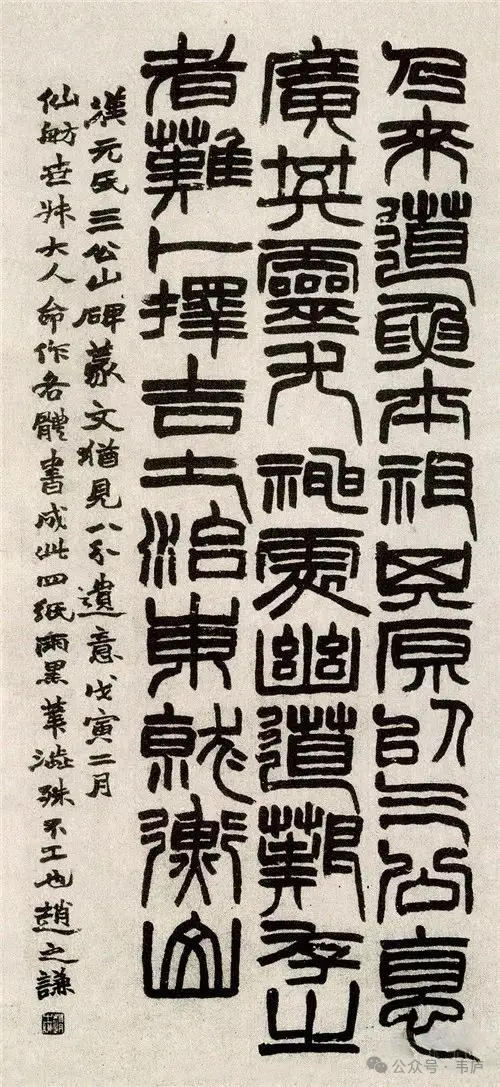 乃來道要本祖其原以三公悳
廣其靈尤神處幽道艱存之
者難卜擇吉土治東就衡山
漢元氏三公山碑篆文猶見八分遺意戊寅二月
仙舫大人命作各體書成此四紙雨黑筆澀殊不工也趙之謙
公众号 · 韦庐